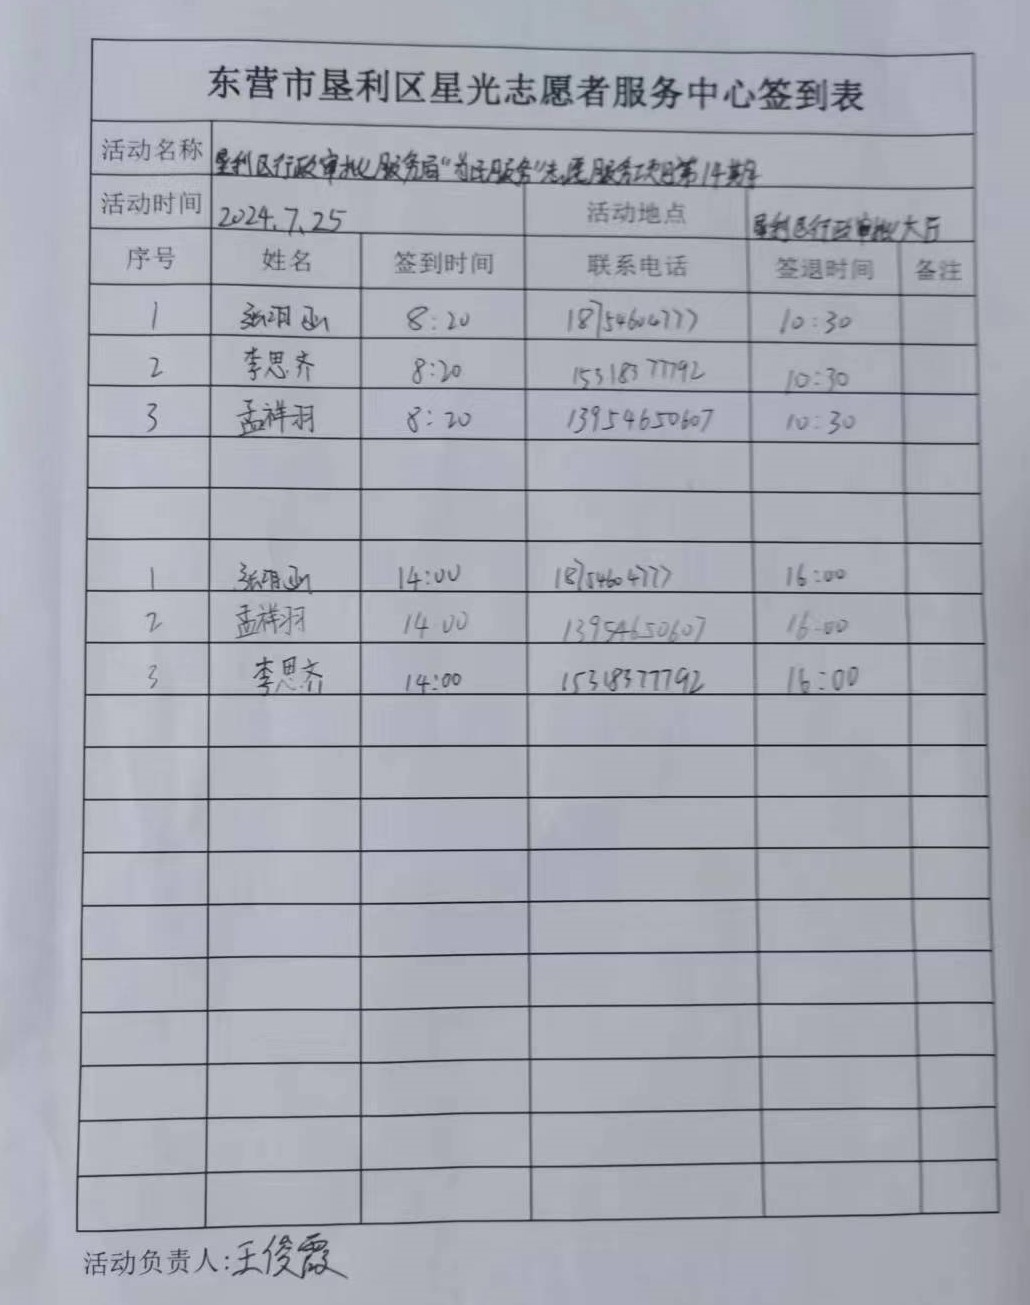 东营市垦利区星光志愿者服务中心签到表
活动名称 垦利区行政审批服务局“为民服务”志愿服务项目第14期
活动时间 2024.7.25 活动地点 垦利区行政审批大厅
序号 姓名 签到时间 联系电话 签退时间 备注
1 张玥函 8:20 18754604777 10:30
2 李思齐 8:20 15318377792 10:30
3 孟祥羽 8:20 13954650607 10:30
1 张玥函 14:00 18754604777 16:00
2 孟祥羽 14:00 13954650607 16:00
3 李思齐 14:00 15318377792 16:00
活动负责人:王俊霞